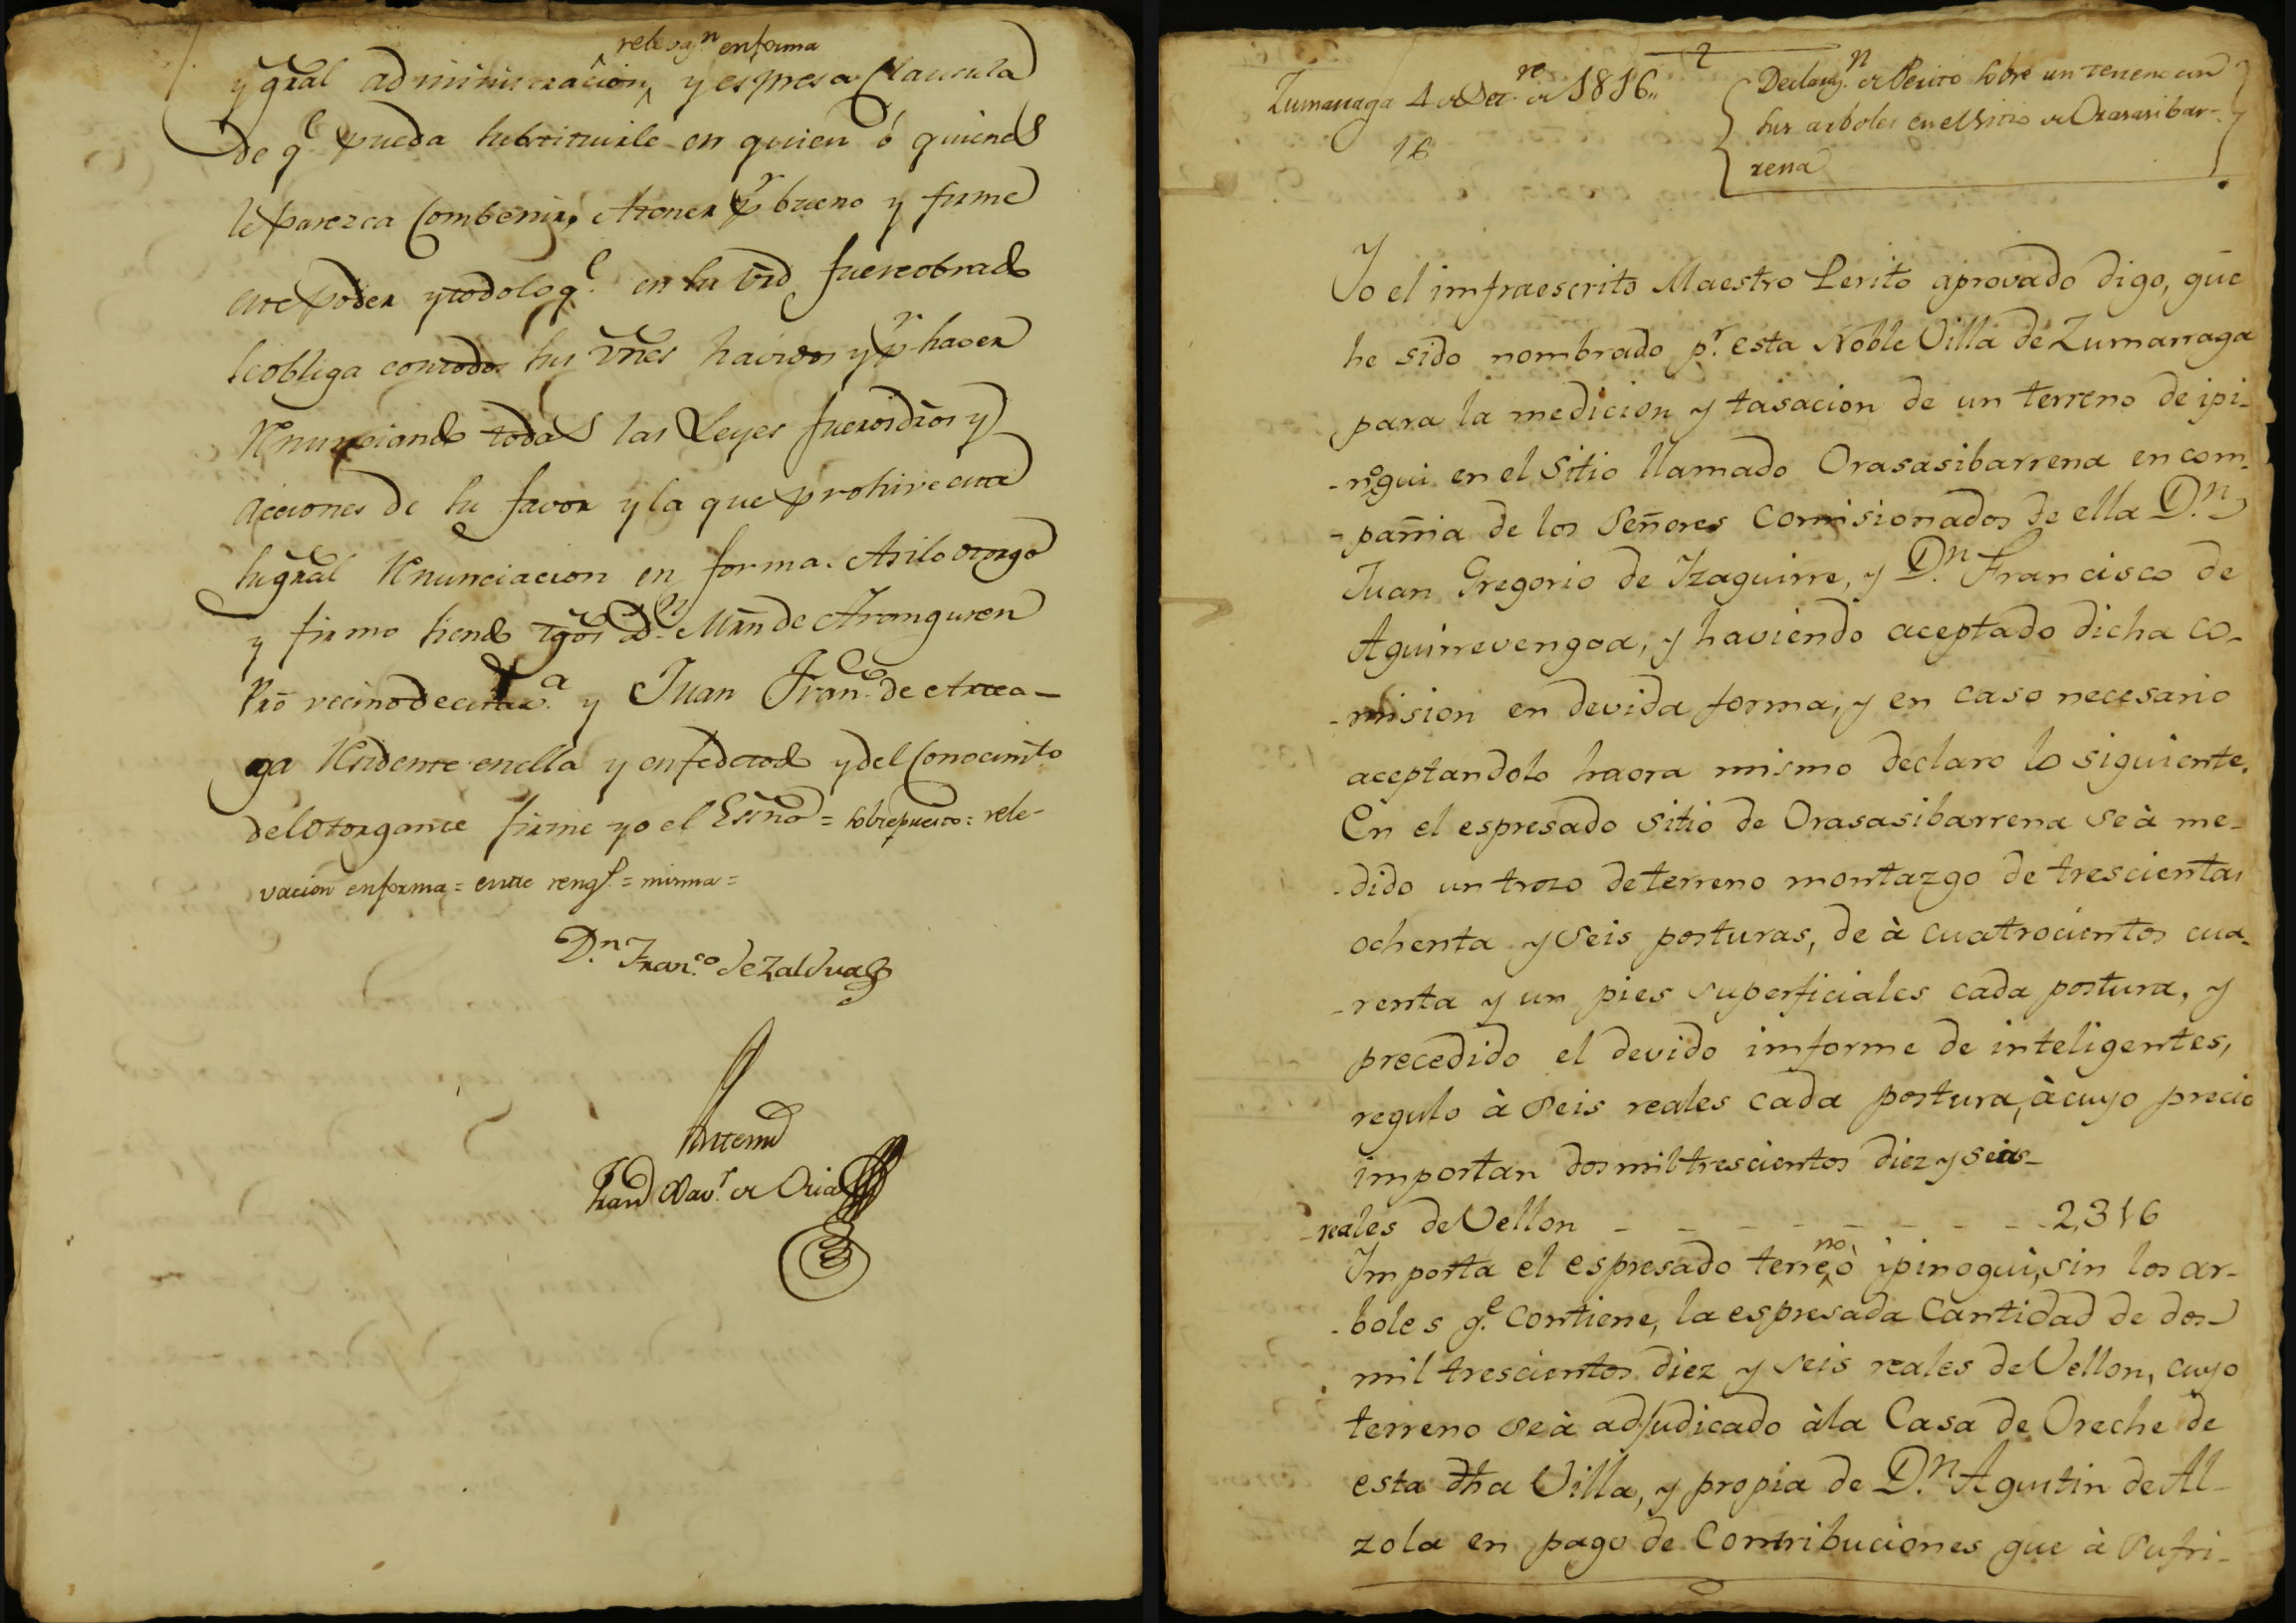 relevaz.n en forma
y gral administracion, y espresa Clausula
de q.e pueda substituirle en quien ó quienes
le parezca Combenir, Atener p.r bueno y firme
este poder y todo lo q.e en su vrd fuere obrado
se obliga con todos sus vnes havidos y p.r haver
Renunciando todas las Leyes fueros dros y
acciones de su favor y la que prohive esta
su gral Renunciacion en forma. Asi lo otorgo
y firmo siendo tgos D.n Mrn de Aranguren
Pro vecino de esta v.a y Juan Fran.co de Arrea-
ga Residente en ella y en fe de todo y del Conocimto
del otorgante firme yo el Essno = sobrepuesto = rele-
vacion en forma = entre rengs = misma =
D.n Fran.co de Zaldua
Antemi
Juan Xav.r de Oria
Zumarraga 4 de Dec.re de 1816,,
16
Declaraz.n de Perito sobre un terreno con
sus arboles en el sitio de Orasasibar-
rena
Yo el imfraescrito Maestro Perito aprovado digo, que
he sido nombrado p.r esta Noble Villa de Zumarraga
para la medicion y tasacion de un terreno de ipi-
-nogui en el Sitio llamado Orasasibarrena en com-
-pañia de los Señores Comisionados de ella D.n
Juan Gregorio de Yzaguirre, y D.n Francisco de
Aguirrevengoa, y haviendo aceptado dicha co-
-mision en devida forma, y en caso necesario
aceptandolo haora mismo declaro lo siguiente.
En el espresado sitio de Orasasibarrena se à me-
-dido un trozo de terreno montazgo de trescientas
ochenta y seis posturas, de à cuatrocientos cua-
-renta y un pies superficiales cada postura, y
precedido el devido imforme de inteligentes,
regulo à seis reales cada postura, à cuyo precio
importan dos mil trescientos diez y seis-
-reales de Vellon - - - - - - - - - 2,316
Importa el espresado terreno ò ipinogui, sin los ar-
-boles q.e Contiene, la espresada Cantidad de dos
mil trescientos diez y seis reales de Vellon, cuyo
terreno se à adjudicado à la Casa de Oreche de
esta dha Villa, y propia de D.n Agustin de Al-
zola en pago de Contribuciones que à sufri-